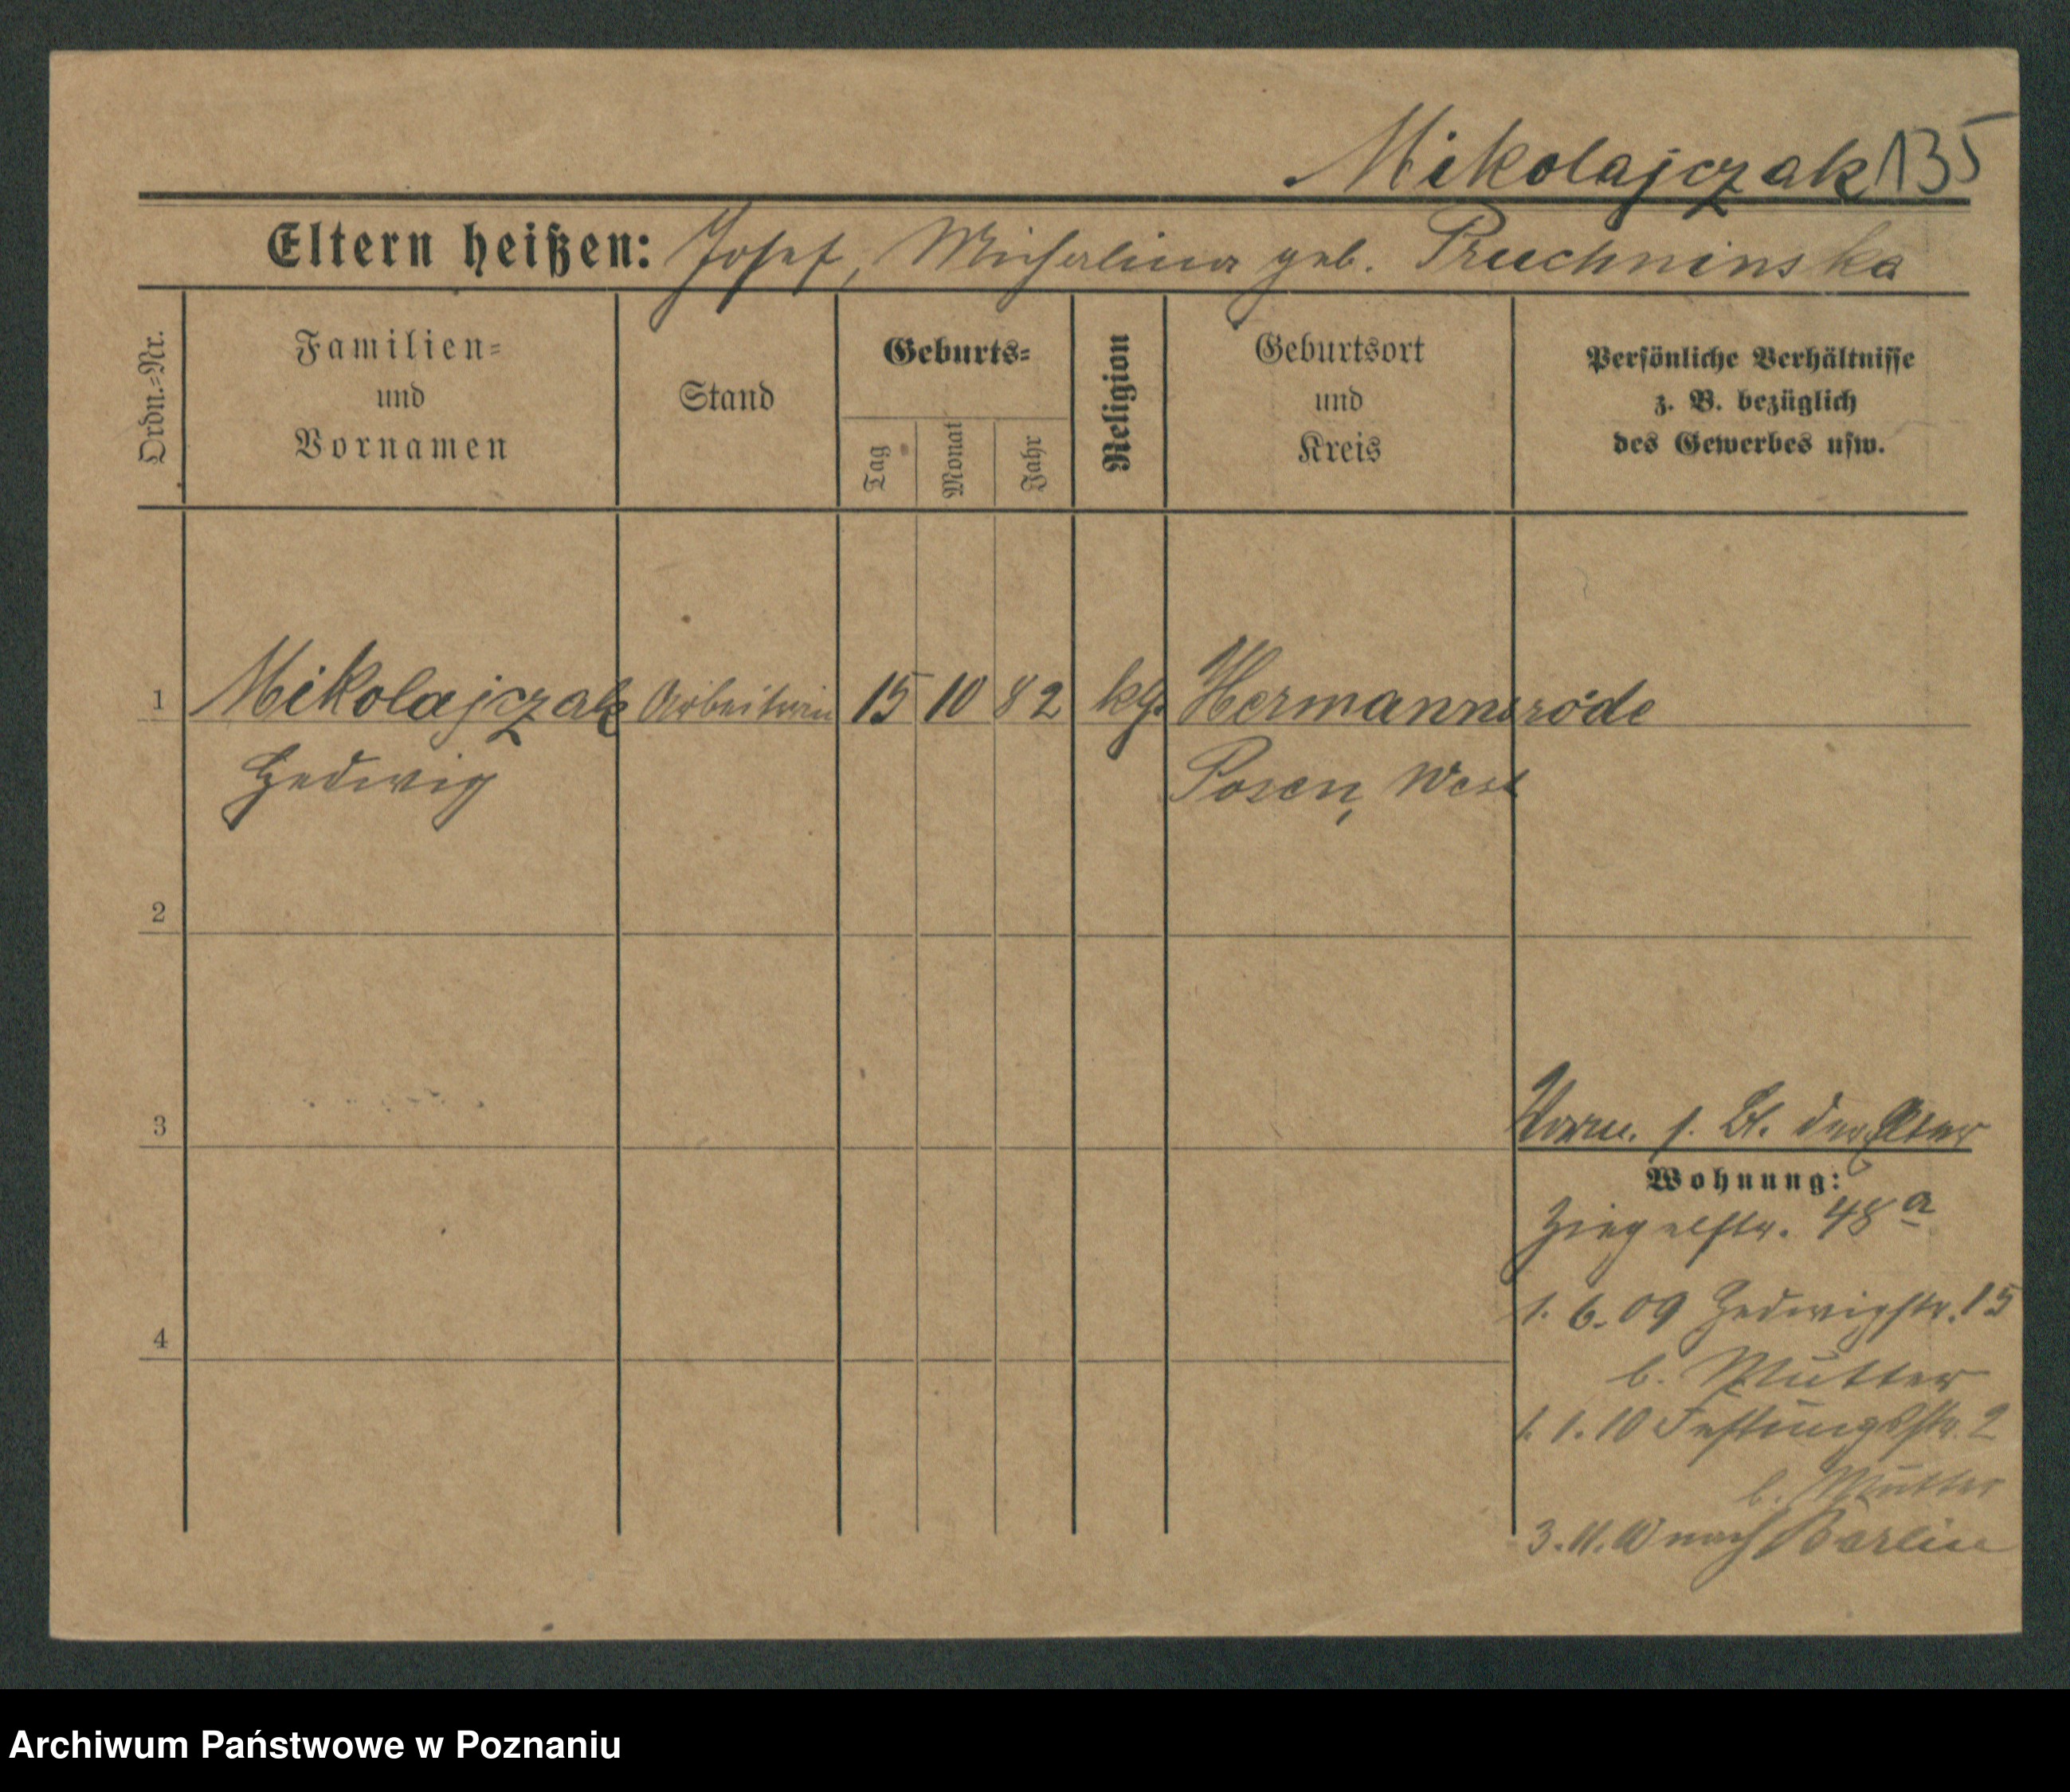 Mikolajczak 135
Eltern heißen: Josef, Michalina geb. Pruchninska
Ordn.=Nr.
Familien=
und
Vornamen
Stand
Geburts=
Tag
Monat
Jahr
Religion
Geburtsort
und
Kreis
Persönliche Verhältnisse
z. B. bezüglich
des Gewerbes usw.
1 Mikolajczak Arbeiterin 15 10 82 kth. Hermannsrode
Hedwig Posen, West
2
3
s. Bl. der Eltern
Wohnung:
Ziegelstr. 48a
4
1. 6. 09 Hedwigstr. 15
b. Mutter
1. 1. 10 Festungsstr. 2
b. Mutter
3. 11. 10 nach Berlin
Archiwum Państwowe w Poznaniu